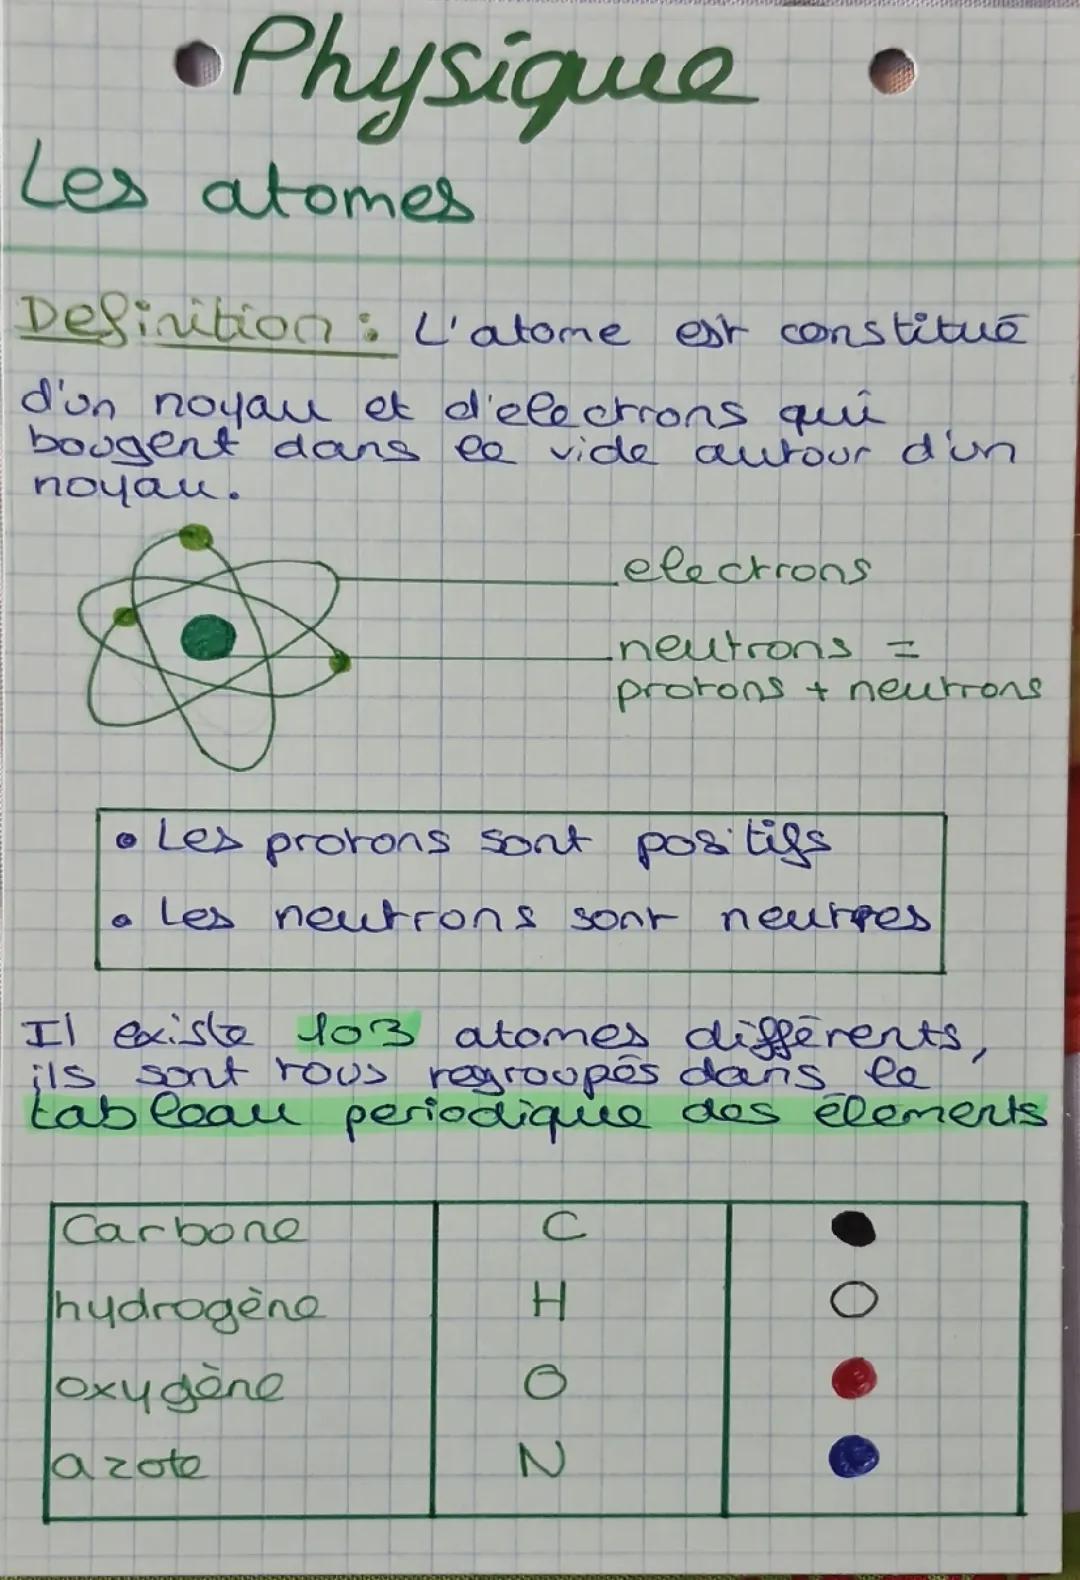 Physique
Les atomes
Definition : L'atome est constitué
d'un noyau et d'electrons qui
bougent dans le vide autour d'un
noyau.
electrons
neutrons =
protons + neutrons
• Les protons sont positifs
• Les neutrons sont neutres
Il existe 103 atomes différents,
ils sont tous regroupés dans le
tableau periodique des élements
Carbone C
hydrogène H
oxygène O
azote N